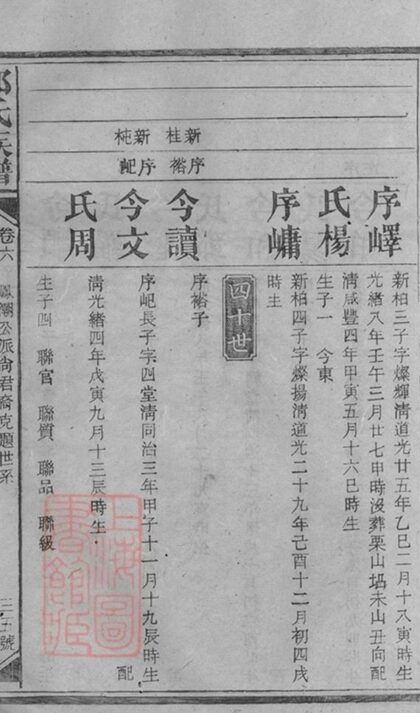 序嶧
新柏三子字燦輝清道光廿五年乙巳二月十八寅時生
光緒八年壬午三月廿七申時沒葬栗山塥未山丑向配
氏楊
清咸豐四年甲寅五月十六巳時生
生子一 今東
序嵊
新柏四子字燦揚清道光二十九年己酉十二月初四戌
時生
四十世
新序
桂裕
今讀
序裕子
新序
杶𡵆
今文
序𡵆長子字四堂清同治三年甲子十一月十九辰時生配
氏周
清光緒四年戊寅九月十三辰時生
生子四 聯官 聯質 聯品 聯級
氏族譜
卷六
公派尙君裔克題世系
號
上海圖書館藏